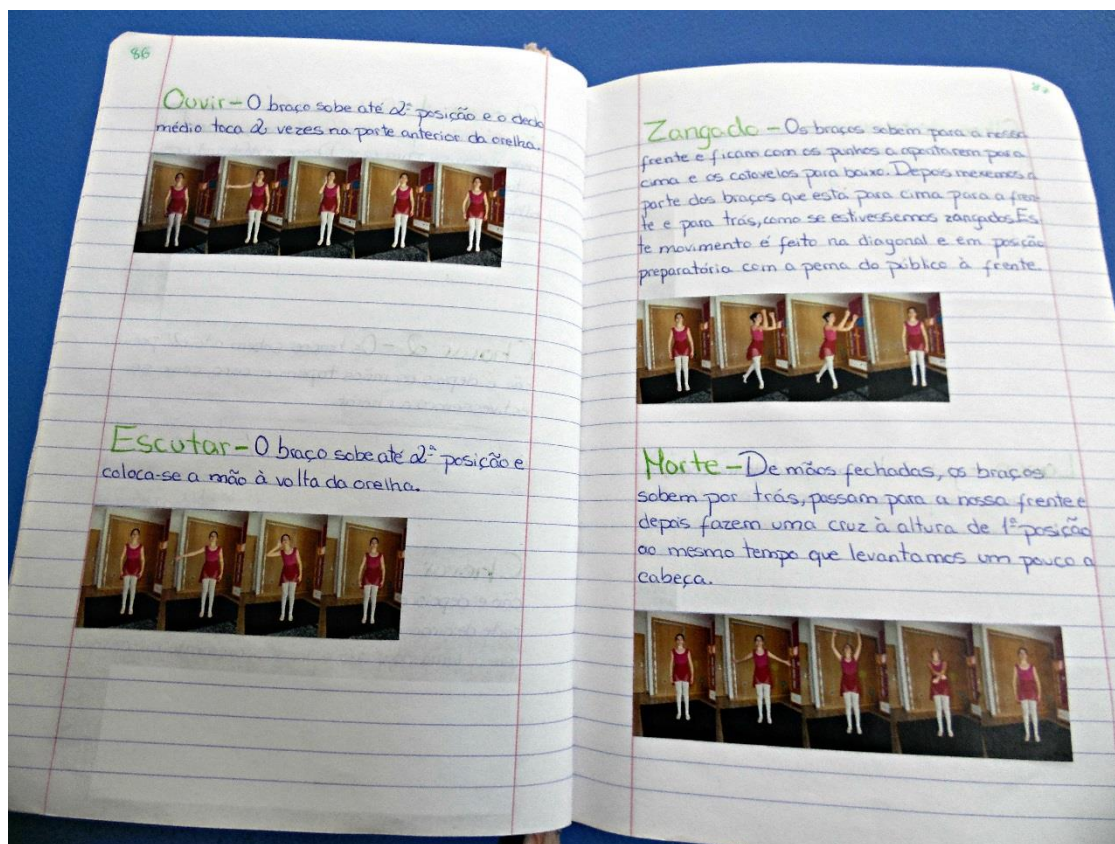 86
Ouvir - O braço sobe até 2ª posição e o dedo
médio toca 2 vezes na parte anterior da orelha.
Escutar - O braço sobe até 2ª posição e
coloca-se a mão à volta da orelha.
87
Zangado - Os braços sobem para a nossa
frente e ficam com os punhos a apontarem para
cima e os cotovelos para baixo. Depois mexemos a
parte dos braços que está para cima para a fren
te e para trás, como se estivessemos zangados. Es
te movimento é feito na diagonal e em posição
preparatória com a perna do público à frente.
Morte - De mãos fechadas, os braços
sobem por trás, passam para a nossa frente e
depois fazem uma cruz à altura de 1ª posição
ao mesmo tempo que levantamos um pouco a
cabeça.